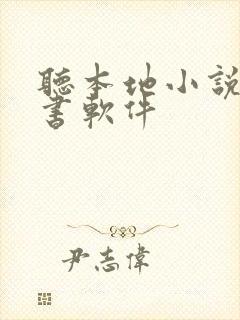 聽本地小說
書軟件
尹志偉